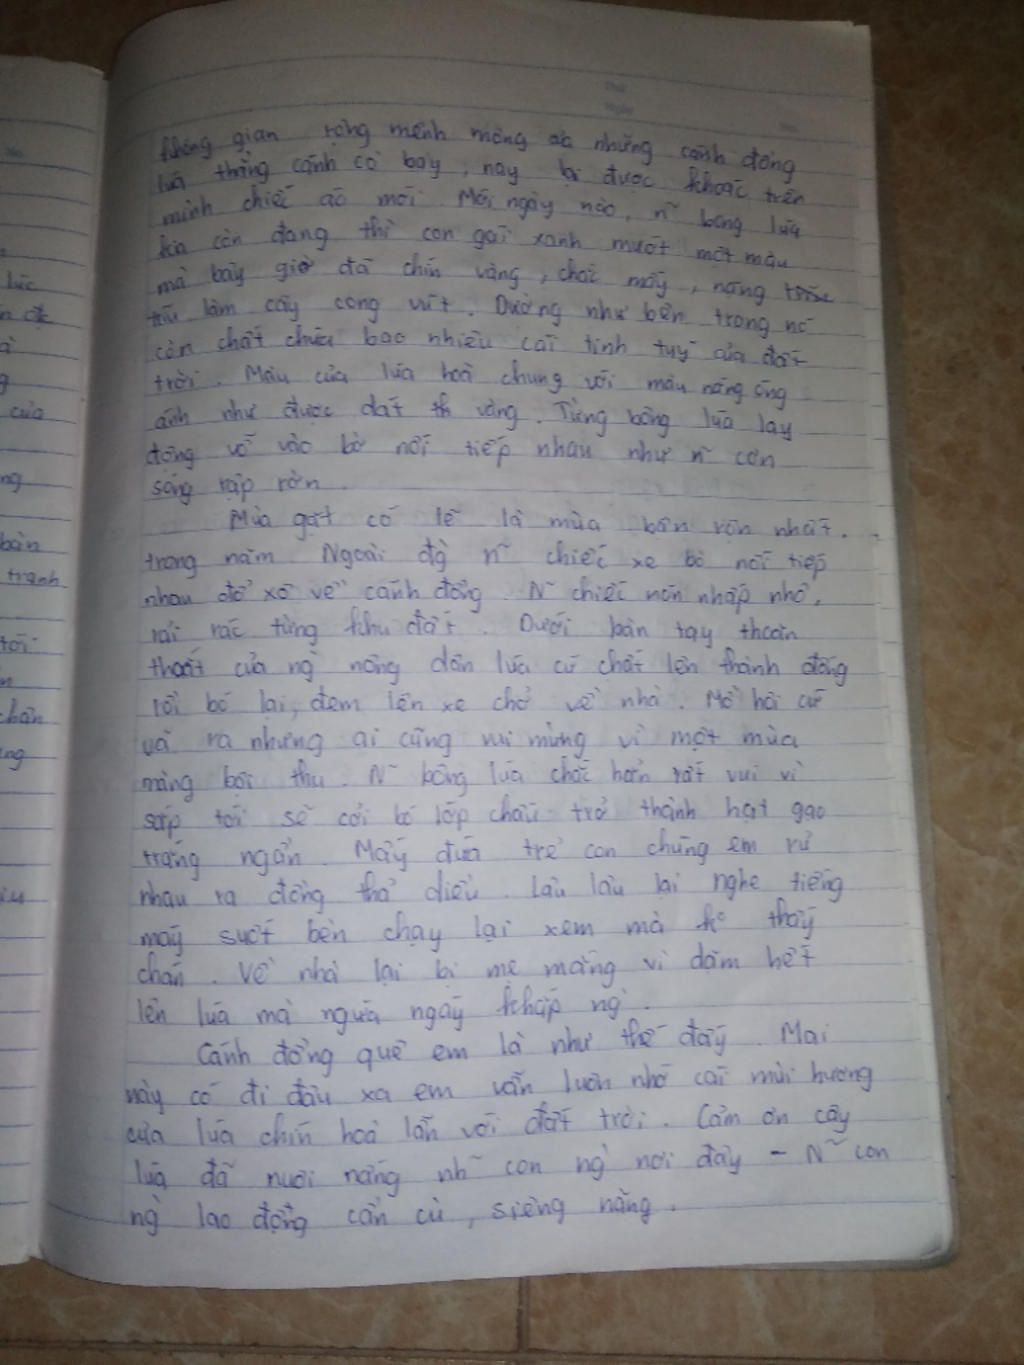 không gian rộng mênh mông của những cánh đồng
lúa thẳng cánh cò bay, nay lại được khoác trên
mình chiếc áo mới. Mới ngày nào, n~ bông lúa
kia còn đang thì con gái xanh mướt một màu
mà bây giờ đã chín vàng, chắc mẩy, nặng
trĩu làm cây cong vút. Dường như bên trong nó
còn chất chứa bao nhiêu cái tinh tuý của đất
trời. Màu của lúa hoà chung với màu nắng óng
ánh như được dát vàng. Từng bông lúa lay
động vỗ vào bờ nối tiếp nhau như n~ cơn
sóng rập rờn.
Mùa gặt có lẽ là mùa bận rộn nhất
trong năm. Ngoài đg n~ chiếc xe bò nối tiếp
nhau đổ xô về cánh đồng. N~ chiếc nón nhấp nhô,
rải rác từng khu đất. Dưới bàn tay thoăn
thoắt của ng` nông dân lúa cứ chất lên thành đống
rồi bó lại, đem lên xe chở về nhà. Mồ hôi cứ
vã ra nhưng ai cũng vui mừng vì một mùa
màng bội thu. N~ bông lúa chắc hẳn rất vui vì
sắp tới sẽ cởi bỏ lớp trấu trở thành hạt gạo
trắng ngần. Mấy đứa trẻ con chúng em rủ
nhau ra đồng thả diều. Lâu lâu lại nghe tiếng
máy suốt bèn chạy lại xem mà ko thấy
chán. Về nhà lại bị mẹ mắng vì dặm hết
lên lúa mà ngứa ngáy khắp ng`.
Cánh đồng quê em là như thế đấy. Mai
này có đi đâu xa em vẫn luôn nhớ cái mùi hương
của lúa chín hoà lẫn với đất trời. Cảm ơn cây
lúa đã nuôi nấng nh~ con ng` nơi đây - N~ con
ng` lao động cần cù, siêng năng.